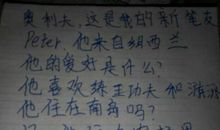 奥利夫，这是我的新笔友
Peter，他来自纽西兰
他的爱好是什么？
他喜欢练王功夫和游泳
他住在南岛吗？